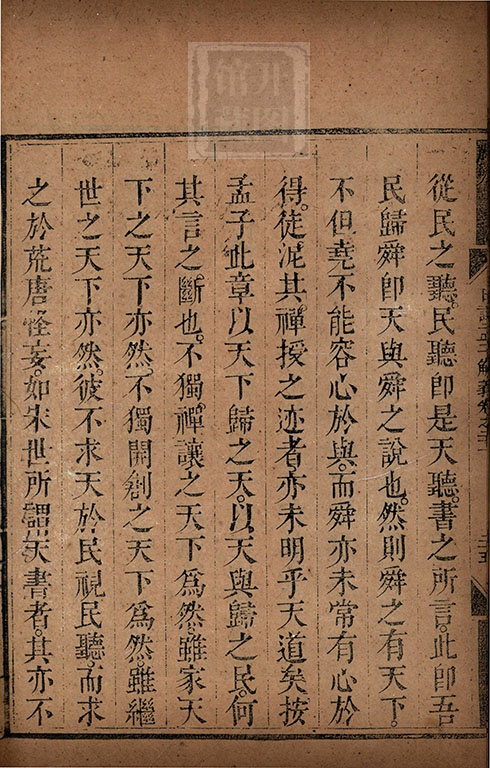 從民之聽。民聽即是天聽。書之所言。此即吾
民歸舜即天與舜之說也。然則舜之有天下。
不但堯不能容心於與。而舜亦未常有心於
得。徒泥其禪授之迹者亦未明乎天道矣按
孟子此章以天下歸之天。以天與歸之民。何
其言之斷也。不獨禪讓之天下爲然雖家天
下之天下亦然。不獨開創之天下爲然。雖繼
世之天下亦然。彼不求天於民視民聽。而求
之於荒唐怪妄。如宋世所謂天書者。其亦不